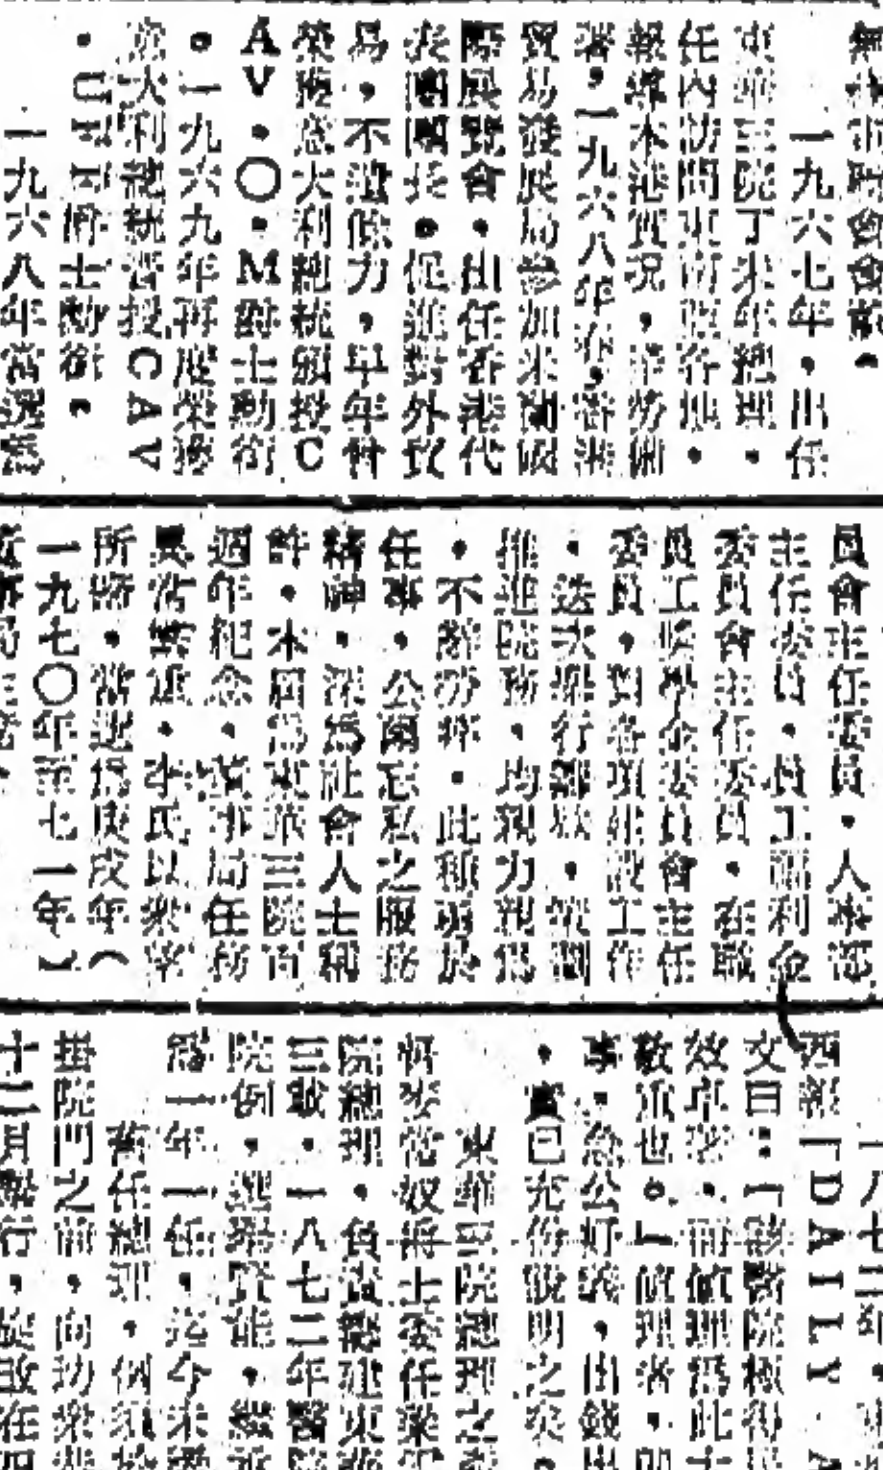 一九六七年・出任
東華三院丁未年總理・
任內訪問東南亞各地・
報導本港實況・辛勞
一九六八年春・香港
貿易發展局參加米蘭
際展覽會・任香港代
表團團長・促進對外貿
易・不遺餘力・早年曾
榮獲意大利總統頒授C
AV・〇・M爵士勳銜
。一九六九年再度榮獲
意大利總統晉授CAV
・UFF爵士勳銜・
一九六八年當選為
員會主任委員・人事部
主任委員・員工福利金
委員會主任委員・在職
員工獎學金委員會主任
委員・對各項建設工作
・迭次舉行・籌劃
推進院務・均親力親為
・不辭勞瘁・此種勇於
任事・公爾忘私之服務
精神・深為社會人士稱
許・本屆為東華三院百
週年紀念・董事局任務
異常繁重・李氏以眾望
所歸・當選為庚戌年(
一九七〇年至七一年)
一八七二年・
西報「DAILY A
文曰:「該醫院極得
效卓著・而值理為此
敬重也。」值理者・
事・急公好義・出錢出
・實已充份說明之矣。
東華三院總理之
爵士委任梁
院總理・負責籌建東華
三載・一八七二年醫院
院例・選舉賢能・繼
為一年一任・迄今未
舊任總理・例須於
掛院門之前・向坊眾
十二月舉行・